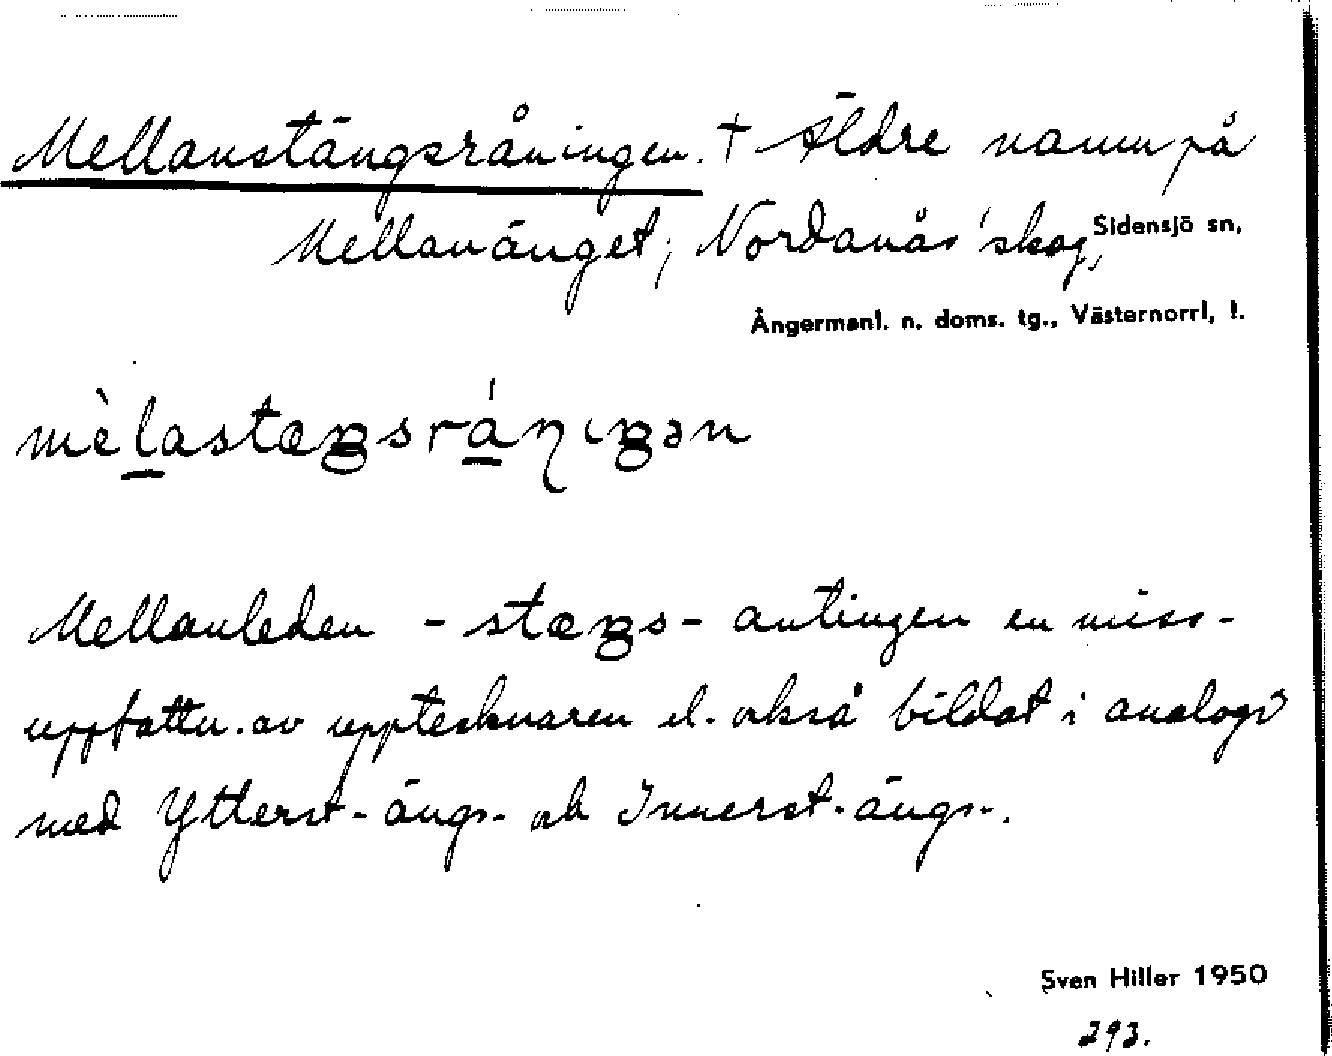 Mellanstängsråningen. † Äldre namn på
Mellanänget, Nordanås' skog, Sidensjö sn,
Ångermanl. n. doms. tg., Västernorrl, l.
mèlastæŋsráɳɩŋən
Mellanleden - stæŋs- antingen en miss-
uppfattn. av upptecknaren el. också bildat i analogi
med Ytterst-ängs- och Innerst-ängs-.
Sven Hiller 1950
293.